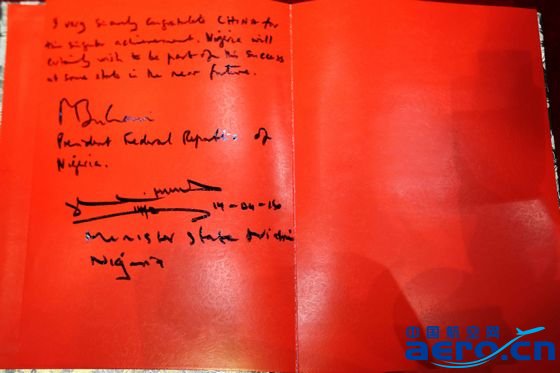 I very sincerely congratulate CHINA for
this singular achievement. Nigeria will
certainly wish to be part of this success
at some state in the near future.
MBuhari
President Federal Republic of
Nigeria.
14-04-16
Minister State Aviation
Nigeria
中国航业网
aero.cn